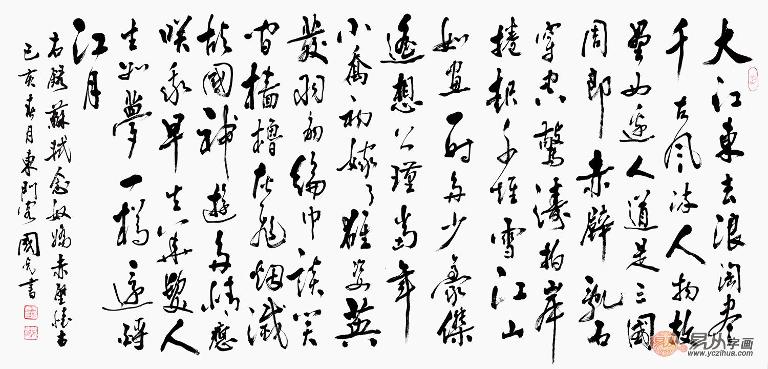 大江東去浪淘盡
千古風流人物故
壘西邊人道是三國
周郎赤壁亂石
穿空驚濤拍岸
捲起千堆雪江山
如畫一時多少豪傑
遙想公瑾當年
小喬初嫁了雄姿英
發羽扇綸巾談笑
間檣櫓灰飛煙滅
故國神遊多情應
笑我早生華髮人
生如夢一樽還酹
江月
右錄蘇軾念奴嬌赤壁懷古
己亥春月東門國書
易从字画
www.yczihua.com